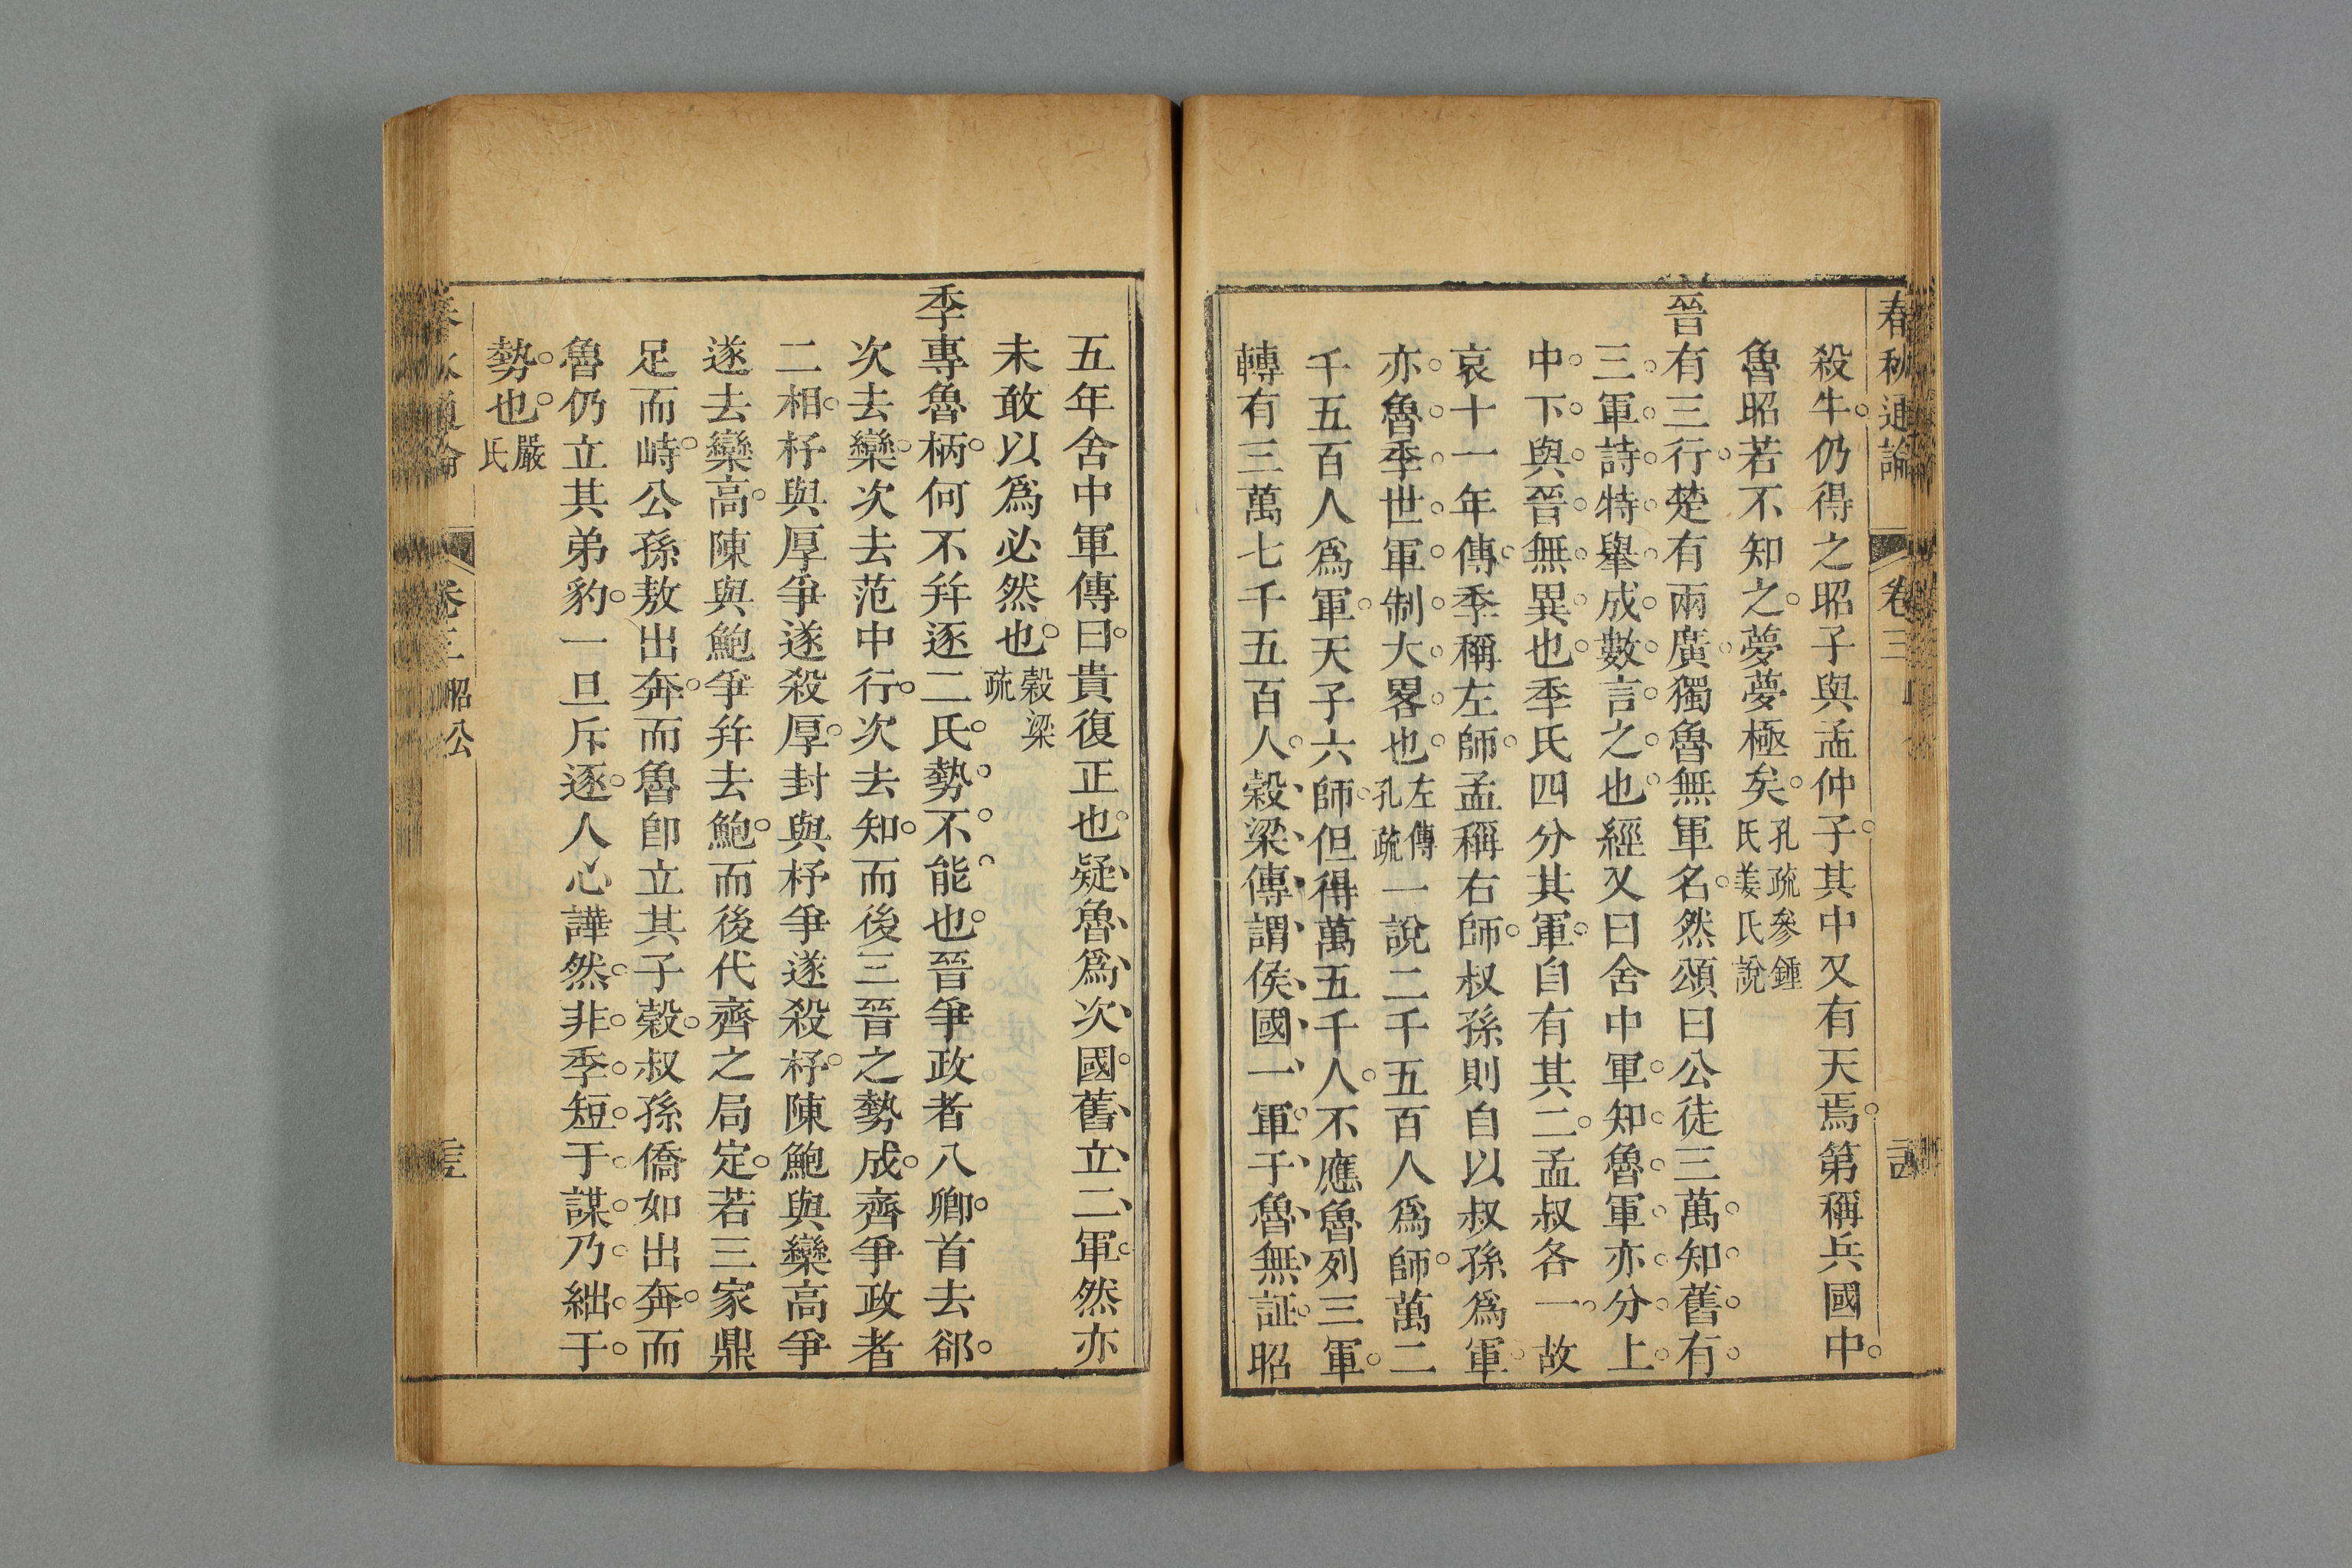 春秋通論 卷三
殺牛仍得之昭子與孟仲子其中又有天焉第稱兵國中
魯昭若不知之夢夢極矣孔疏參鍾氏姜氏說
晉有三行楚有兩廣獨魯無軍名然頌曰公徒三萬知舊有
三軍詩特舉成數言之也經又曰舍中軍知魯軍亦分上
中下與晉無異也季氏四分其軍自有其二孟叔各一故
哀十一年傳季稱左師孟稱右師叔孫則自以叔孫爲軍
亦魯季世軍制大畧也左傳孔疏一說二千五百人爲師萬二
千五百人爲軍天子六師但得萬五千人不應魯列三軍
轉有三萬七千五百人穀梁傳謂侯國一軍于魯無証昭
五年舍中軍傳曰貴復正也疑魯爲次國舊立二軍然亦
未敢以爲必然也穀梁疏
季專魯柄何不幷逐二氏勢不能也晉爭政者八卿首去郤
次去欒次去范中行次去知而後三晉之勢成齊爭政者
二相杼與厚爭遂殺厚封與杼爭遂殺杼陳鮑與欒高爭
遂去欒高陳與鮑爭幷去鮑而後代齊之局定若三家鼎
足而峙公孫敖出奔而魯卽立其子穀叔孫僑如出奔而
魯仍立其弟豹一旦斥逐人心譁然非季短于謀乃絀于
勢也嚴氏
卷三 昭公